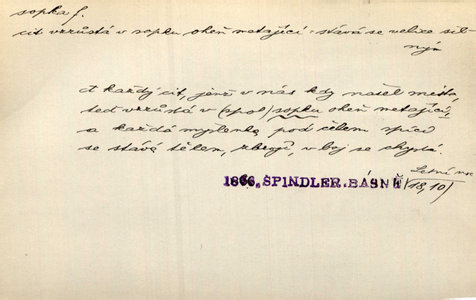 sopka f.
cit vzrůstá v sopku oheň metající = stává se velice sil-
ným
A každý cit, jenž v nás kdy našel místa,
teď vzrůstá v (spol) sopku oheň metající,
a každá myšlenka pod čelem spící
se stává tělem, zbrojí, v boj se chystá.
Letní noc
1866, SPINDLER. BÁSNĚ (18, 10)